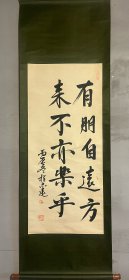 有朋自遠方
来不亦樂乎